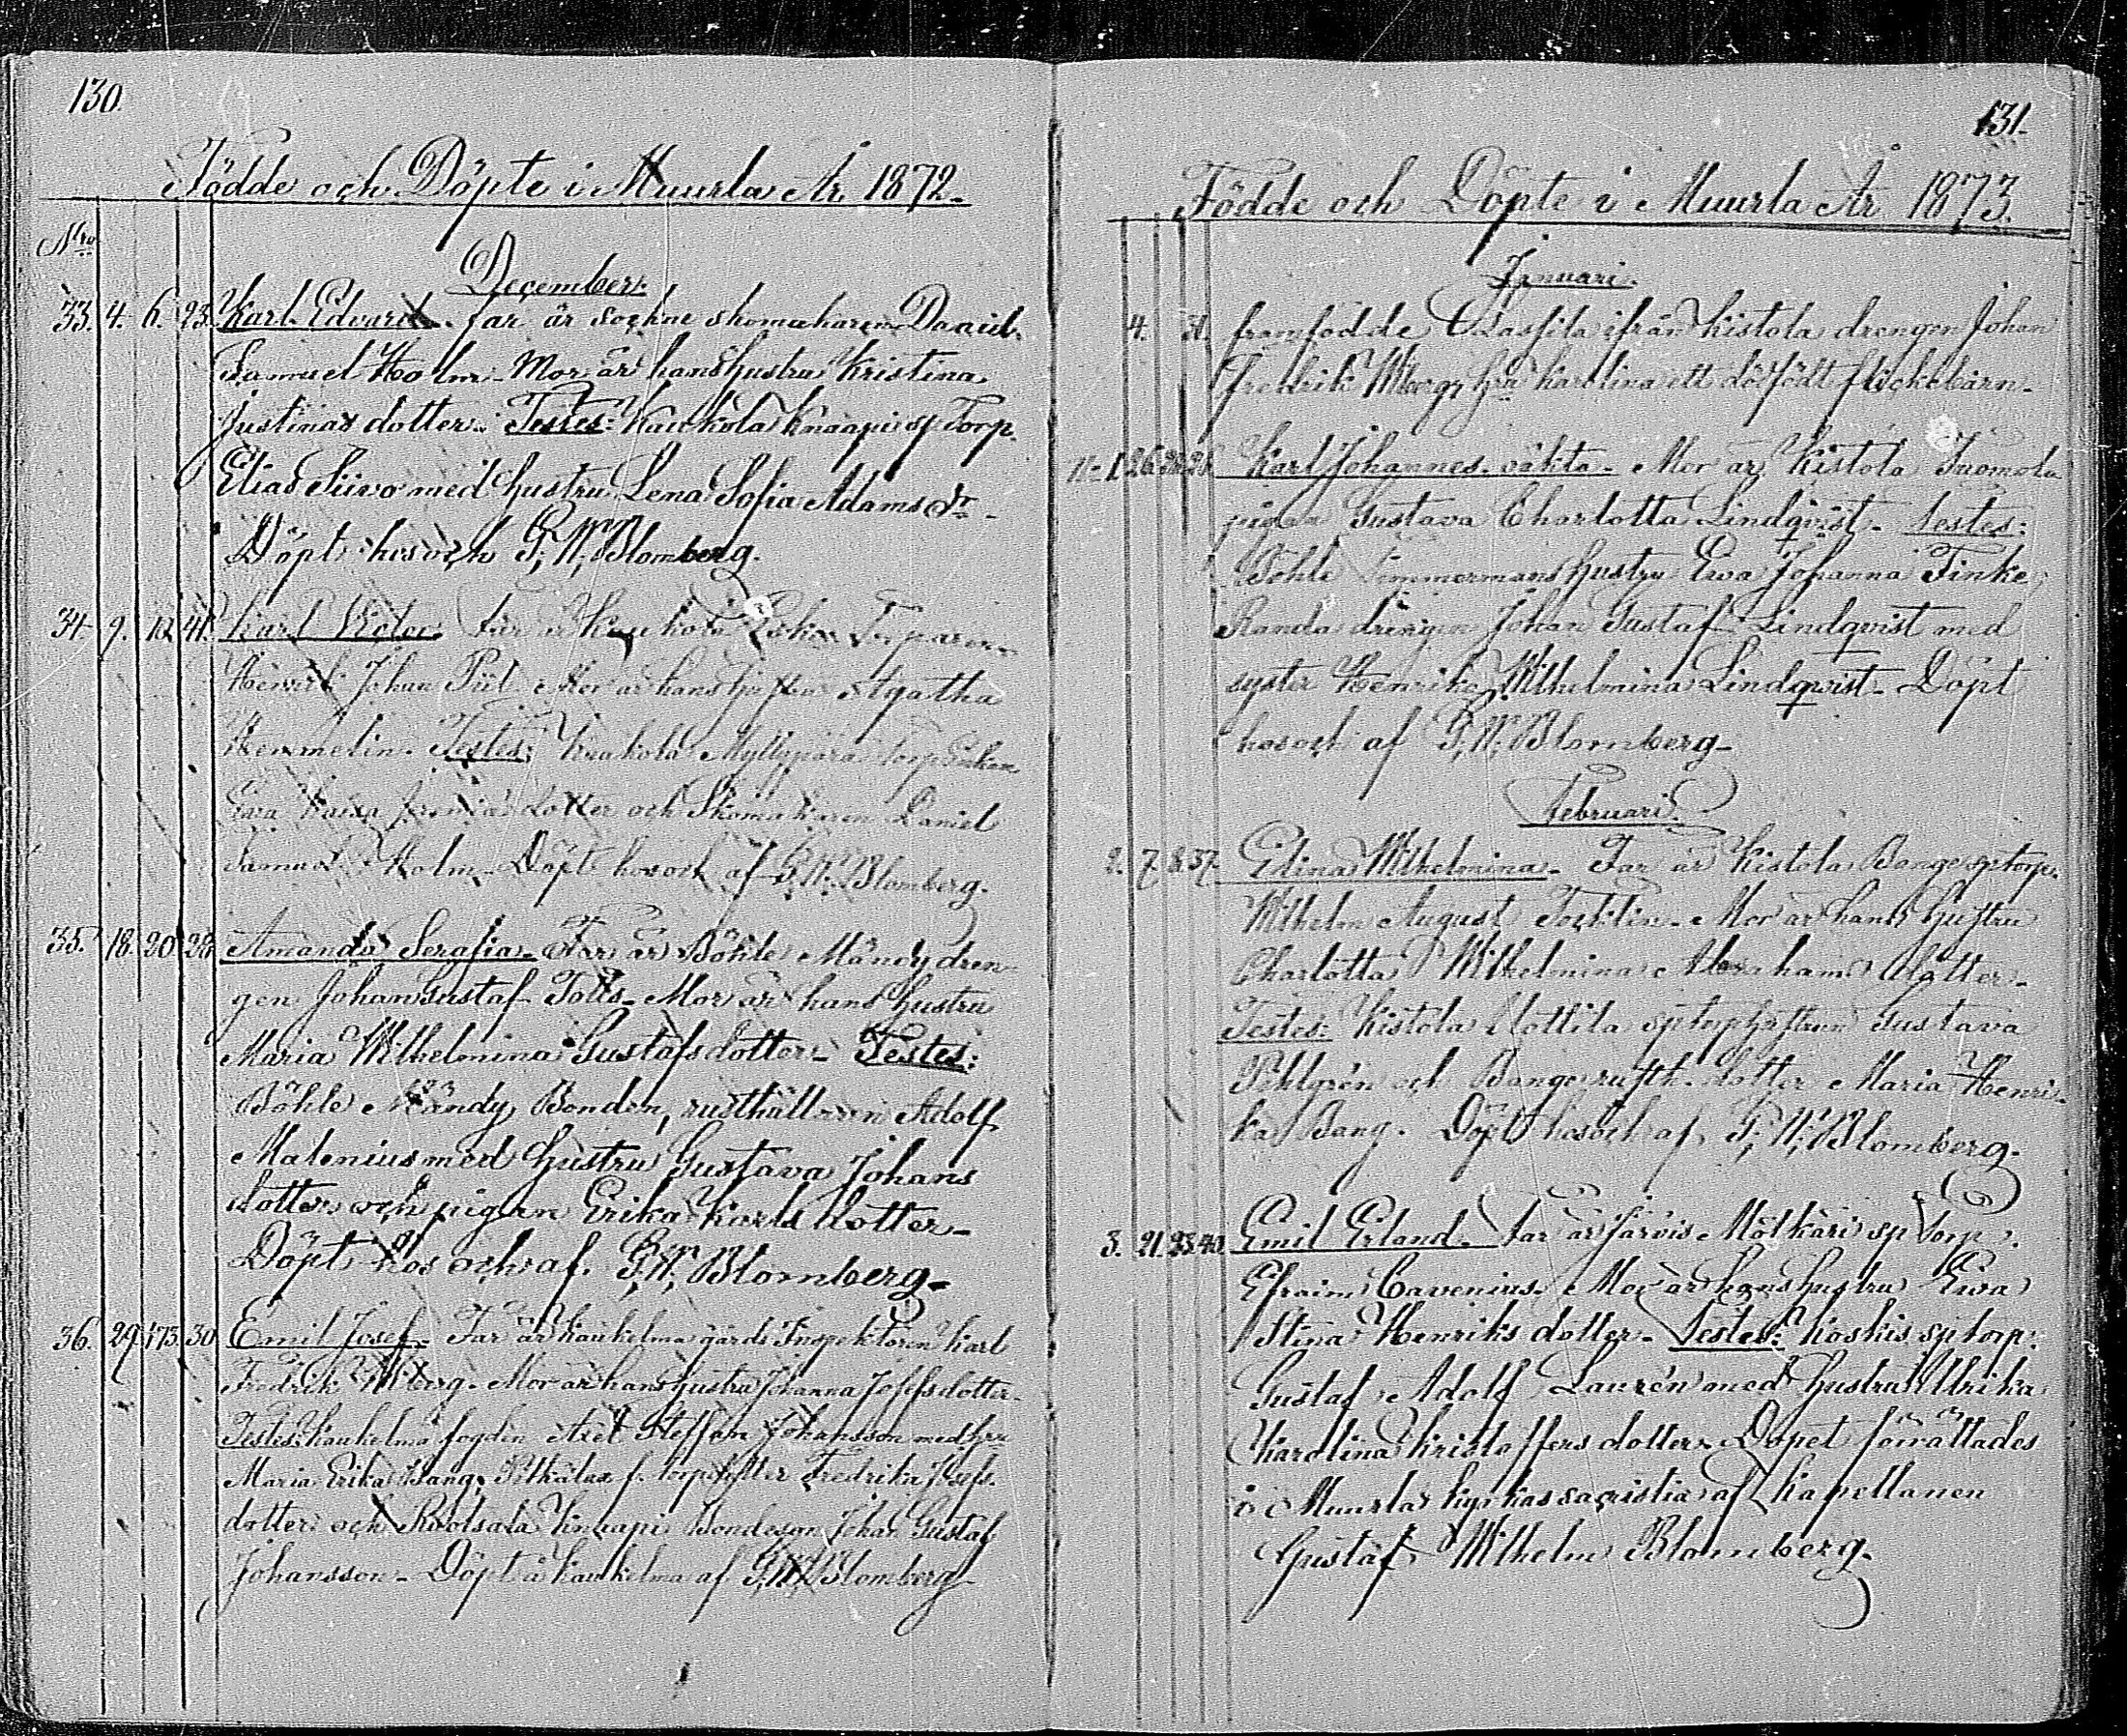 130.
Födde och Döpte i Muurla År 1872.
Nro
December.
33. 4. 6. 23. Karl Edvard. far är sockne skomakaren Daniel
Samuel Holm. Mor är hans hustru Kristina
Justina dotter. Testes: Kaukola Knaapi sp Torp.
Elias Siivo med hustru Lena Sofia Adams dr
Döpt hos och G. W. Blomberg.
34. 9. 10. 41. Karl Viktor. Far är Kaukola Torparen
Henrik Johan Piil. Mor är hans hustru Agatha
Hemmelin. Testes: Kaukola Myllyperä Torp Enkan
Eva Kaisa dotter och Skomakaren Daniel
Samuel Holm. Döpt hos och af G. W. Blomberg.
35. 18. 20. 28. Amanda Serafia. Far är Böhle Mändy dren-
gen Johan Gustaf Tolls. Mor är hans hustru
Maria Wilhelmina Gustafsdotter. Testes:
Böhle Mändy Bonden, rusthållaren Adolf
Malenius med hustru Gustava Johans
dotter och pigan Erika Karls dotter.
Döpt hos och af. G. W. Blomberg.
36. 29. 1/73. 30. Emil Josef. Far är Kaukelma gårds Inspektoren Karl
Fredrik Wiberg. Mor är hans hustru Johanna Josefsdotter.
Testes: Kaukelma fogden Axel Steffan Johansson med hru
Maria Erika Bang, f. torp dotter Fredrika Josefs.
dotter och Ruotsala Knaapi Bondeson Johan Gustaf
Johansson. Döpt å Kaukelma af G. W. Blomberg.
131.
Födde och Döpte i Muurla År 1873.
Januari.
4. 31. framfödde ifrån Kistola drengen Johan
Fredrik Wberg, hru Karolina ett dödfödt flickebarn.
1. 26. 28. Karl Johannes. oäkta. Mor är Kistola Tuomola
pigan Gustava Charlotta Lindqvist. Testes:
Böhle Timmermans hustru Ewa Johanna Tinke,
Randa drengen Johan Gustaf Lindqvist med
syster Henrika Wilhelmina Lindqvist. Döpt
hos och af G. W. Blomberg.
Februari.
2. 7. 8. 37. Edina Wilhelmina. Far är Kistola Bange sp torp.
Wilhelm August Tocklin. Mor är hans hustru
Charlotta Wilhelmina Abrahams dotter.
Testes: Kistola Uottila sp torp hustrun Gustava
Pihlgrén och Bange rusth. dotter Maria Henri-
ka Bang. Döpt hos och af G. W. Blomberg.
3. 21. 23. 40. Emil Erland. Far är Järvis Mölkäri sp Torp.
Efraim Cavenius. Mor är hans hustru Ewa
Stina Henriks dotter. Testes: Koskis sp torp:
Gustaf Adolf Laurén med hustru Ulrika
Karolina Kristoffers dotter. Dopet förrättades
i Muurla kyrkas sacristia af Kapellanen
Gustaf Wilhelm Blomberg.